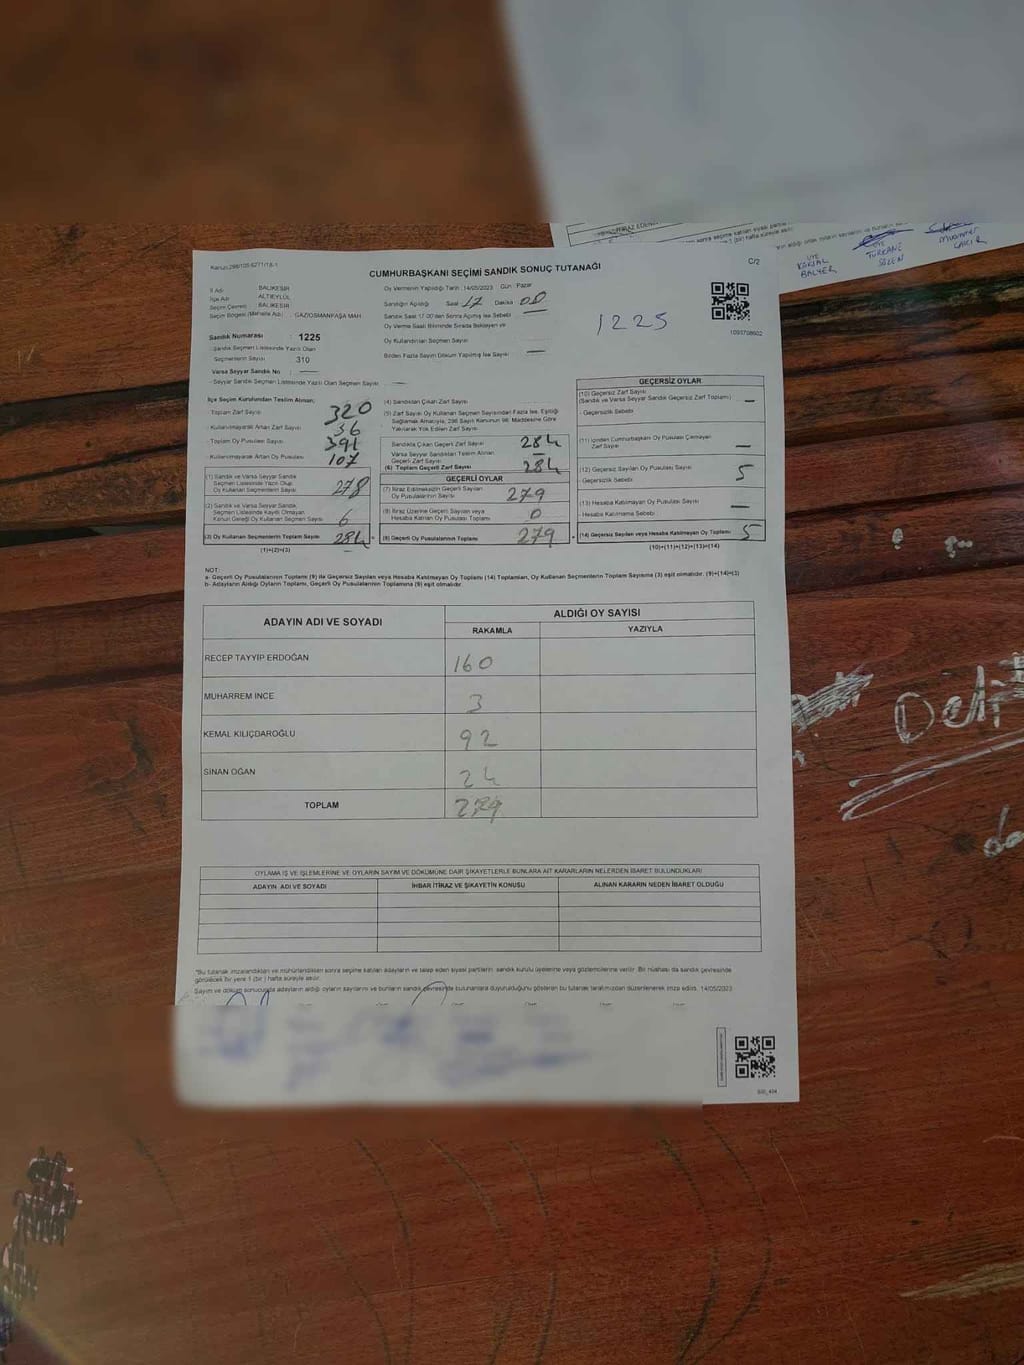 Kanun:298/105 6271/18-1
CUMHURBAŞKANI SEÇİMİ SANDIK SONUÇ TUTANAĞI
C/2
İl Adı : BALIKESİR
İlçe Adı : ALTIEYLÜL
Seçim Çevresi : BALIKESİR
Seçim Bölgesi (Mahalle Adı) : GAZİOSMANPAŞA MAH.
Oy Vermenin Yapıldığı Tarih : 14/05/2023 Gün : Pazar
Sandığın Açıldığı Saat : 17 Dakika : 00
Sandık Saat 17.00'den Sonra Açılmış İse Sebebi
Oy Verme Saati Bitiminde Sırada Bekleyen ve
Oy Kullandırılan Seçmen Sayısı
Birden Fazla Sayım Döküm Yapılmış İse Sayısı
1225
Sandık Numarası : 1225
Sandık Seçmen Listesinde Yazılı Olan
Seçmenlerin Sayısı : 310
Varsa Seyyar Sandık No :
- Seyyar Sandık Seçmen Listesinde Yazılı Olan Seçmen Sayısı :
İlçe Seçim Kurulundan Teslim Alınan;
- Toplam Zarf Sayısı 320
- Kullanılmayarak Artan Zarf Sayısı 36
- Toplam Oy Pusulası Sayısı
- Kullanılmayarak Artan Oy Pusulası 107
(1) Sandık ve Varsa Seyyar Sandık
Seçmen Listesinde Yazılı Olup
Oy Kullanan Seçmenlerin Sayısı 278
(2) Sandık ve Varsa Seyyar Sandık
Seçmen Listesinde Kayıtlı Olmayan
Kanun Gereği Oy Kullanan Seçmen Sayısı 6
(3) Oy Kullanan Seçmenlerin Toplam Sayısı 284
(1)+(2)=(3)
(4) Sandıktan Çıkan Zarf Sayısı
(5) Zarf Sayısı Oy Kullanan Seçmen Sayısından Fazla İse, Eşitliği
Sağlamak Amacıyla, 298 Sayılı Kanunun 98. Maddesine Göre
Yakılarak Yok Edilen Zarf Sayısı
Sandıkta Çıkan Geçerli Zarf Sayısı 284
Varsa Seyyar Sandıktan Teslim Alınan
Geçerli Zarf Sayısı
(6) Toplam Geçerli Zarf Sayısı 284
GEÇERLİ OYLAR
(7) İtiraz Edilmeksizin Geçerli Sayılan
Oy Pusulalarının Sayısı 279
(8) İtiraz Üzerine Geçerli Sayılan veya
Hesaba Katılan Oy Pusulası Toplamı 0
(9) Geçerli Oy Pusulalarının Toplamı 279
GEÇERSİZ OYLAR
(10) Geçersiz Zarf Sayısı
(Sandık ve Varsa Seyyar Sandık Geçersiz Zarf Toplamı)
- Geçersizlik Sebebi
(11) İçinden Cumhurbaşkanı Oy Pusulası Çıkmayan
Zarf Sayısı
(12) Geçersiz Sayılan Oy Pusulası Sayısı 5
- Geçersizlik Sebebi
(13) Hesaba Katılmayan Oy Pusulası Sayısı
- Hesaba Katılmama Sebebi
(14) Geçersiz Sayılan veya Hesaba Katılmayan Oy Toplamı 5
(10)+(11)+(12)+(13)=(14)
NOT:
a- Geçerli Oy Pusulalarının Toplamı (9) ile Geçersiz Sayılan veya Hesaba Katılmayan Oy Toplamı (14) Toplamları, Oy Kullanan Seçmenlerin Toplam Sayısına (3) eşit olmalıdır. (9)+(14)=(3)
b- Adayların Aldığı Oyların Toplamı, Geçerli Oy Pusulalarının Toplamına (9) eşit olmalıdır.
ADAYIN ADI VE SOYADI
ALDIĞI OY SAYISI
RAKAMLA YAZIYLA
RECEP TAYYİP ERDOĞAN 160
MUHARREM İNCE 3
KEMAL KILIÇDAROĞLU 92
SİNAN OĞAN 24
TOPLAM 279
OYLAMA İŞ VE İŞLEMLERİNE VE OYLARIN SAYIM VE DÖKÜMÜNE DAİR ŞİKAYETLERLE BUNLARA AİT KARARLARIN NELERDEN İBARET BULUNDUKLARI
ADAYIN ADI VE SOYADI İHBAR İTİRAZ VE ŞİKAYETİN KONUSU ALINAN KARARIN NEDEN İBARET OLDUĞU
*Bu tutanak imzalandıktan ve mühürlendikten sonra seçime katılan adayların ve talep eden siyasi partilerin sandık kurulu üyelerine veya gözlemcilerine verilir. Bir nüshası da sandık çevresinde
görülecek bir yere 1 (bir) hafta süreyle asılır.
Sayım ve döküm sonucunda adayların aldığı oyların sayılarını ve bunların sandık çevresinde bulunanlara duyurulduğunu gösteren bu tutanak tarafımızdan düzenlenerek imza edildi. 14/05/2023
ÜYE
KARTAL
BALYER
ÜYE
TÜRKANE
SÖZEN
Muammer